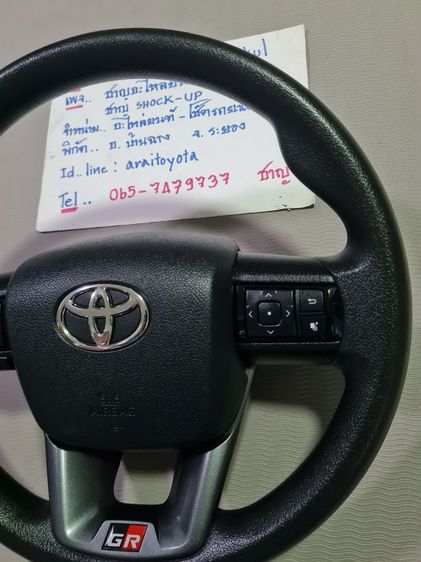 เพจ.. ชาญอะไหล่
ชาญ SHOCK-UP
จำหน่าย.. อะไหล่ยนต์ - โช๊ครถยนต์
พิกัด.. อ. บ้านฉาง จ. ระยอง
Id..line : araitoyota
Tel.. 065-7479737 ชาญ
SRS
AIRBAG
GR